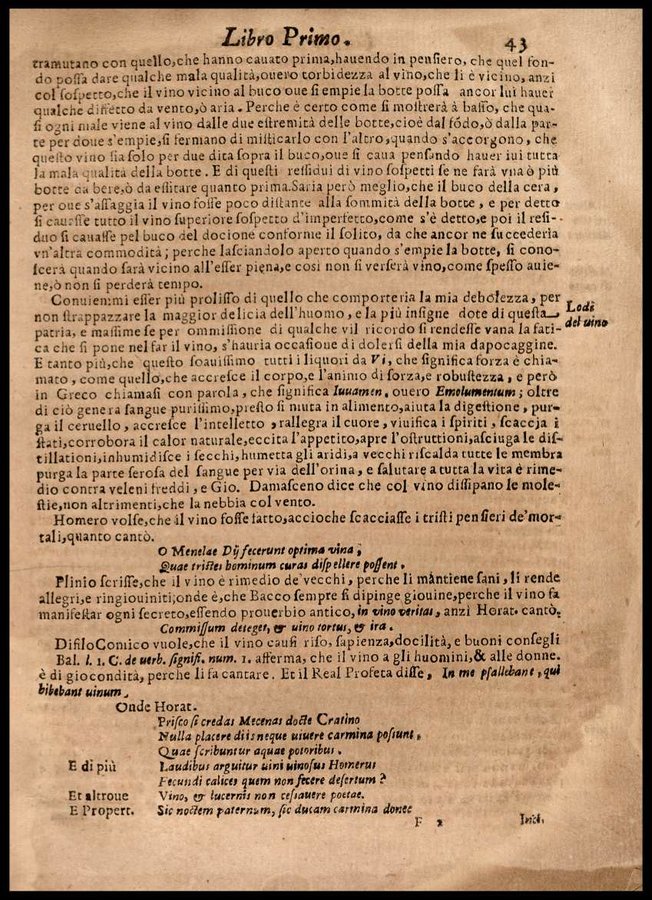 Libro Primo. 43
tramutano con quello,che hanno cauato prima,hauendo in pensiero, che quel fon-
do possa dare qualche mala qualità,ouero torbidezza al vino,che li è vicino, anzi
col sospetto,che il vino vicino al buco oue si empie la botte possa ancor lui hauer
qualche diffetto da vento,ò aria. Perche è certo come si mostrerà à basso, che qua-
si ogni male viene al vino dalle due estremità delle botte,cioè dal fódo,ò dalla par-
te per doue s'empie,si fermano di misticarlo con l'altro,quando s'accorgono, che
questo vino sia solo per due dita sopra il buco,oue si caua pensando hauer iui tutta
la mala qualità della botte. E di questi residui di vino sospetti se ne farà vna ò più
botte da bere,ò da essitare quanto prima.Saria però meglio,che il buco della cera,
per oue s'assaggia il vino fosse poco distante alla sommità della botte, e per detto
si cauesse tutto il vino superiore sospetto d'imperfetto,come s'è detto,e poi il resi-
duo si cauasse pel buco del docione conforme il solito, da che ancor ne succederia
vn'altra commodità; perche lasciandolo aperto quando s'empie la botte, si cono-
scerà quando sarà vicino all'esser piena,e cosi non si verserà vino,come spesso auie-
ne,ò non si perderà tempo.
Conuienmi esser più prolisso di quello che comporteria la mia debolezza, per
non strappazzare la maggior delicia dell'huomo, e la più insigne dote di questa
patria, e massime se per ommissione di qualche vil ricordo si rendesse vana la fati-
ca che si pone nel far il vino, s'hauria occasione di dolersi della mia dapocaggine.
Lodi
del uino
E tanto più,che questo soauissimo tutti i liquori da Vi, che significa forza è chia-
mato, come quello,che accresce il corpo,e l'animo di forza,e robustezza, e però
in Greco chiamasi con parola, che significa Iuuamen, ouero Emolumentum; oltre
di ciò genera sangue purissimo,presto si muta in alimento,aiuta la digestione, pur-
ga il ceruello, accresce l'intelletto, rallegra il cuore, viuifica i spiriti, scaccia i
stati,corrobora il calor naturale,eccita l'appetito,apre l'ostruttioni,asciuga le dis-
tillationi,inhumidisce i secchi,humetta gli aridi,a vecchi riscalda tutte le membra
purga la parte serosa del sangue per via dell'orina, e salutare a tutta la vita è rime-
dio contra veleni freddi, e Gio. Damasceno dice che col vino dissipano le mole-
stie,non altrimenti,che la nebbia col vento.
Homero volse,che il vino fosse fatto,accioche scacciasse i tristi pensieri de'mor-
tali,quanto cantò.
O Menelae Dij fecerunt optima vina,
Quae tristes hominum curas dispellere possent.
Plinio scrisse,che il vino è rimedio de'vecchi, perche li màntiene sani, li rende
allegri,e ringiouiniti;onde è,che Bacco sempre si dipinge giouine,perche il vino fa
manifestar ogni secreto,essendo prouerbio antico, in vino veritas, anzi Horat. cantò.
Commissum deteget, & uino tortus, & ira.
Difilo Comico vuole,che il vino causi riso, sapienza,docilità, e buoni consegli
Bal. l. 1. C. de uerb. signifi. num. 1. afferma, che il vino a gli huomini,& alle donne.
è di giocondità, perche li fa cantare. Et il Real Profeta disse, In me psallebant, qui
bibebant uinum.
Onde Horat.
Prisco si credas Mecenas docte Cratino
Nulla placere diu neque uiuere carmina possunt.
Quae scribuntur aquae potoribus.
E di più Laudibus arguitur uini uinosus Homerus
Fecundi calices quem non fecere desertum?
Et altroue Vino, & lucernis non cessauere poetae.
E Propert. Sic noctem paternum, sic ducam carmina donec
F 2